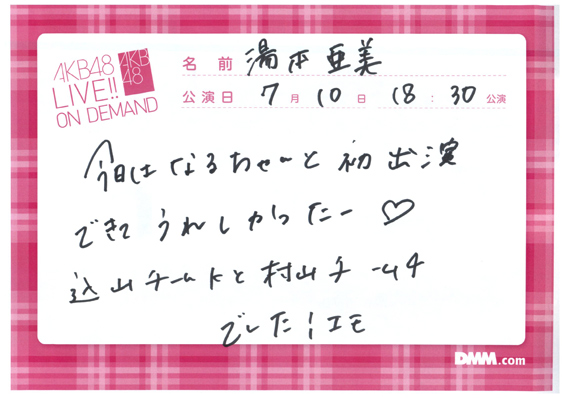 AKB48
LIVE!!
ON DEMAND
AKB
48
名前 湯本亜美
公演日 7月10日 18:30公演
今日はなるちゃーと初出演
できてうれしかったー♡
込山チームKと村山チーム4
でした!エモ
DMM.com